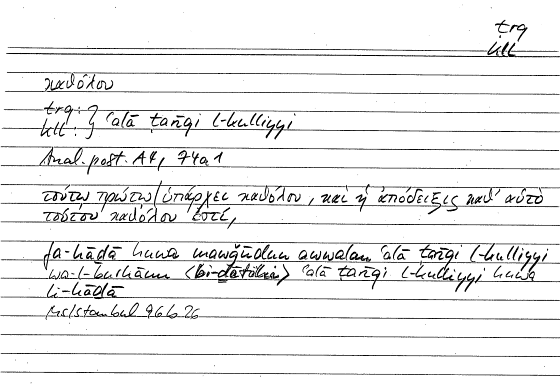 ṭrq
kll
καθόλου
ṭrq : } ʿalā ṭarīqi l-kulliyyi
kll : }
Anal. post. A4, 74a1
τούτῳ πρώτῳ ὑπάρχει καθόλου, καὶ ἡ ἀπόδειξις καθ' αὑτὸ
τούτου καθόλου ἐστί,
fa-hāḏā huwa mawǧūdun awwalan ʿalā ṭarīqi l-kulliyyi
wa-l-burhānu <bi-ḏātihi> ʿalā ṭarīqi l-kulliyyi huwa
li-hāḏā
Ms Istanbul 96b26